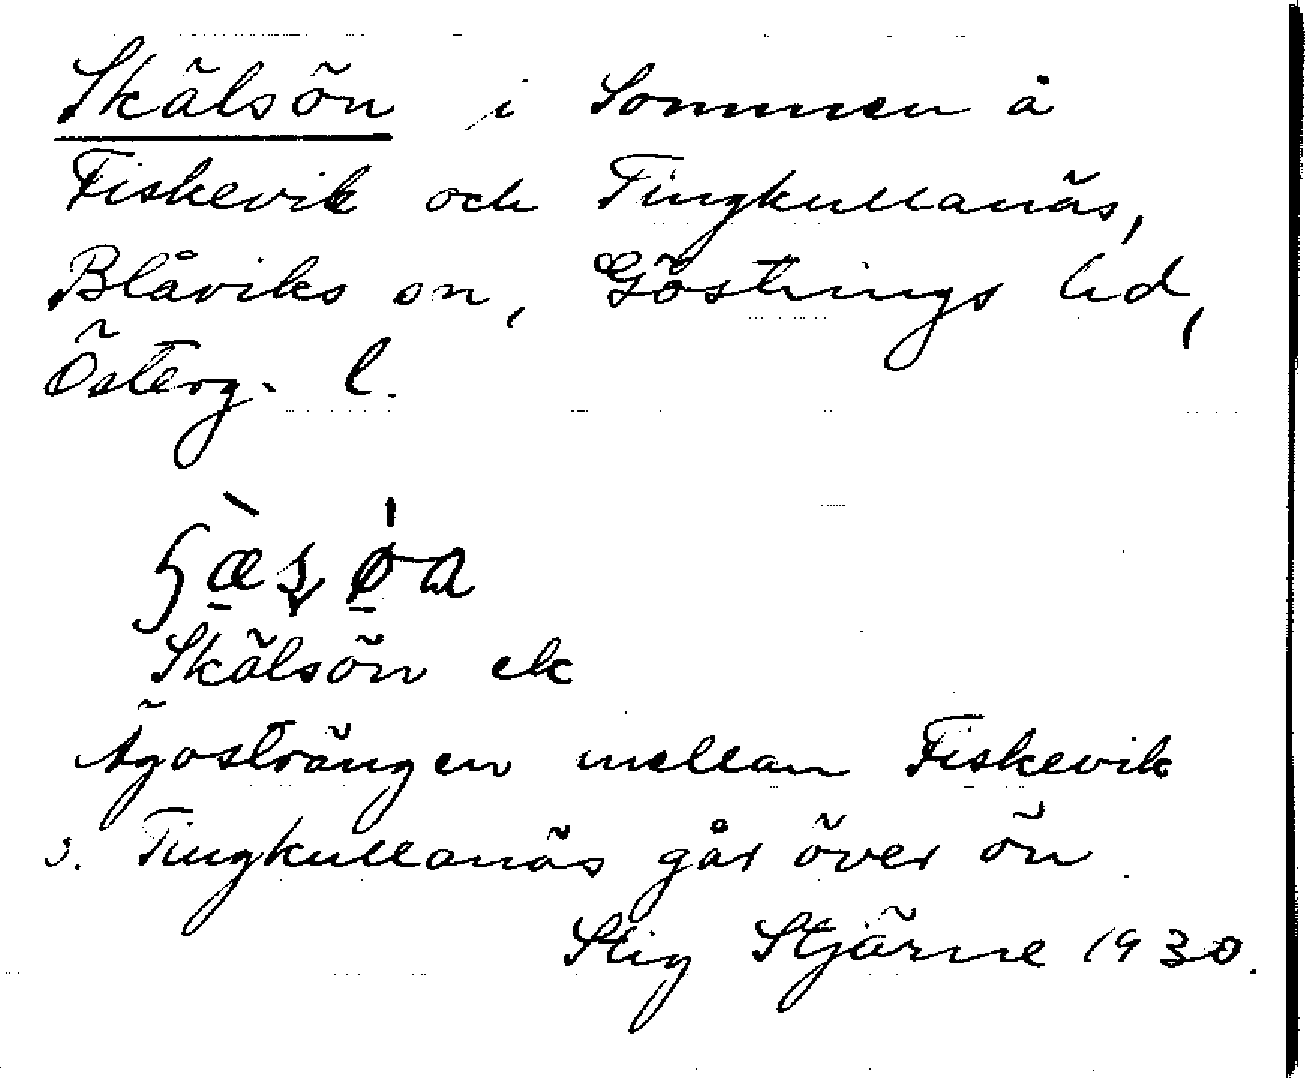 Skälsön i Sommen å
Fiskevik och Tingkullanäs,
Blåviks sn, Göstrings hd,
Österg. l.
Skälsön ek
Ägosträngen mellan Fiskevik
o. Tingkullanäs går över ön
Stig Stjärne 1930.